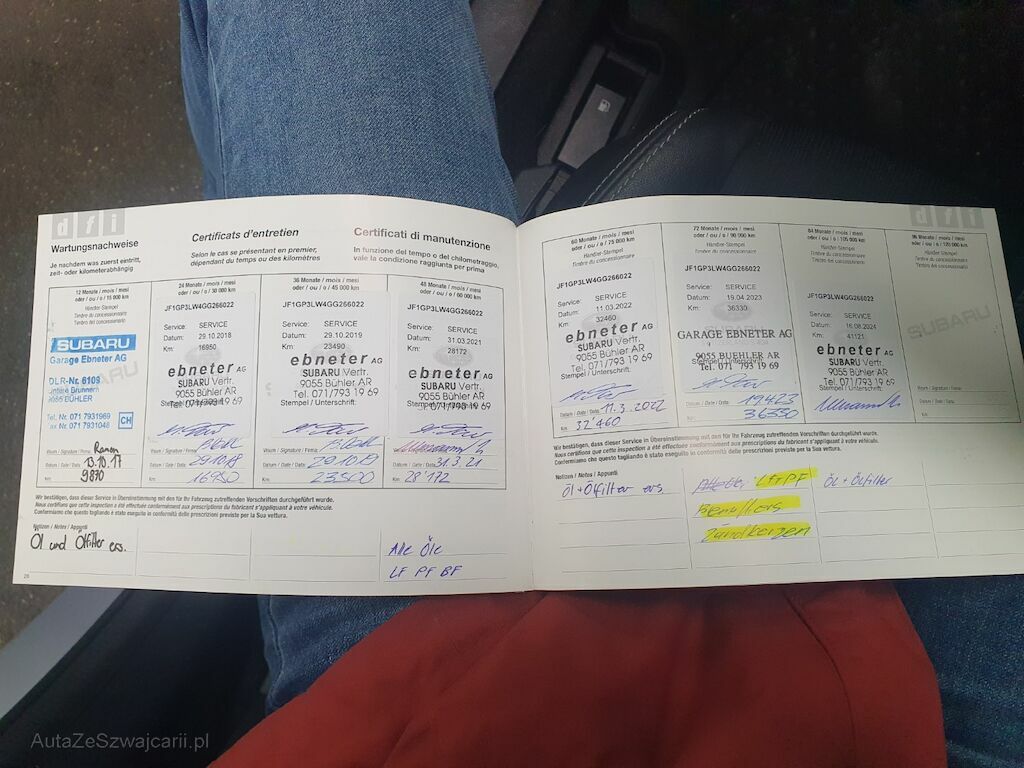 dfi
Wartungsnachweise
Je nachdem was zuerst eintritt,
zeit- oder kilometerabhängig
Certificats d'entretien
Selon le cas se présentant en premier,
dépendant du temps ou des kilomètres
Certificati di manutenzione
In funzione del tempo o del chilometraggio,
vale la condizione raggiunta per prima
12 Monate / mois / mesi
oder / ou / o / 15 000 km
Händler-Stempel
Timbre du concessionnaire
Timbro del concessionario
SUBARU
Garage Ebneter AG
DLR-Nr. 6109
Untere Brunnern
9055 BÜHLER
Tel. Nr. 071 7931969
Fax Nr. 071 7931048
CH
Visum / Signature / Firma: Ramon
Datum / Date / Data: 13.10.17
Km: 9870
24 Monate / mois / mesi
oder / ou / o / 30 000 km
JF1GP3LW4GG266022
Service: SERVICE
Datum: 29.10.2018
Km: 16950
ebneter AG
SUBARU Vertr.
9055 Bühler AR
Tel. 071/793 19 69
Stempel / Unterschrift:
Datum / Date / Data: 29.10.18
Km: 16950
36 Monate / mois / mesi
oder / ou / o / 45 000 km
JF1GP3LW4GG266022
Service: SERVICE
Datum: 29.10.2019
Km: 23490
ebneter AG
SUBARU Vertr.
9055 Bühler AR
Tel. 071/793 19 69
Stempel / Unterschrift:
Datum / Date / Data: 29.10.19
Km: 23500
48 Monate / mois / mesi
oder / ou / o / 60 000 km
JF1GP3LW4GG266022
Service: SERVICE
Datum: 31.03.2021
Km: 28172
ebneter AG
SUBARU Vertr.
9055 Bühler AR
Tel. 071/793 19 69
Stempel / Unterschrift:
Datum / Date / Data: 31.3.21
Km: 28 172
Wir bestätigen, dass dieser Service in Übereinstimmung mit den für Ihr Fahrzeug zutreffenden Vorschriften durchgeführt wurde.
Nous certifions que cette inspection a été effectuée conformément aux prescriptions du fabricant s'appliquant à votre véhicule.
Confermiamo che questo tagliando è stato eseguito in conformità delle prescrizioni previste per la Sua vettura.
Notizen / Notes / Appunti
Öl und Ölfilter ers.
Alle Öle
LF PF BF
28
dfi
60 Monate / mois / mesi
oder / ou / o / 75 000 km
Händler-Stempel
Timbre du concessionnaire
Timbro del concessionario
JF1GP3LW4GG266022
Service: SERVICE
Datum: 11.03.2022
Km: 32460
ebneter AG
SUBARU Vertr.
9055 Bühler AR
Tel. 071/793 19 69
Stempel / Unterschrift:
Datum / Date / Data: 11.3.2022
Km: 32 460
72 Monate / mois / mesi
oder / ou / o / 90 000 km
Händler-Stempel
Timbre du concessionnaire
Timbro del concessionario
JF1GP3LW4GG266022
Service: SERVICE
Datum: 19.04.2023
Km: 36330
GARAGE EBNETER AG
9055 BUEHLER AR
Tel. 071 793 19 69
Stempel / Unterschrift:
Datum / Date / Data: 19.4.23
Km: 36330
84 Monate / mois / mesi
oder / ou / o / 105 000 km
Händler-Stempel
Timbre du concessionnaire
Timbro del concessionario
JF1GP3LW4GG266022
Service: SERVICE
Datum: 16.08.2024
Km: 41121
ebneter AG
SUBARU Vertr.
9055 Bühler AR
Tel. 071/793 19 69
Stempel / Unterschrift:
Datum / Date / Data:
Km:
96 Monate / mois / mesi
oder / ou / o / 120 000 km
Händler-Stempel
Timbre du concessionnaire
Timbro del concessionario
SUBARU
Visum / Signature / Firma:
Datum / Date / Data:
Km:
Wir bestätigen, dass dieser Service in Übereinstimmung mit den für Ihr Fahrzeug zutreffenden Vorschriften durchgeführt wurde.
Nous certifions que cette inspection a été effectuée conformément aux prescriptions du fabricant s'appliquant à votre véhicule.
Confermiamo che questo tagliando è stato eseguito in conformità delle prescrizioni previste per la Sua vettura.
Notizen / Notes / Appunti
Öl + Ölfilter ers.
LF + PF
Zündkerzen
Öl + Ölfilter
AutaZeSzwajcarii.pl